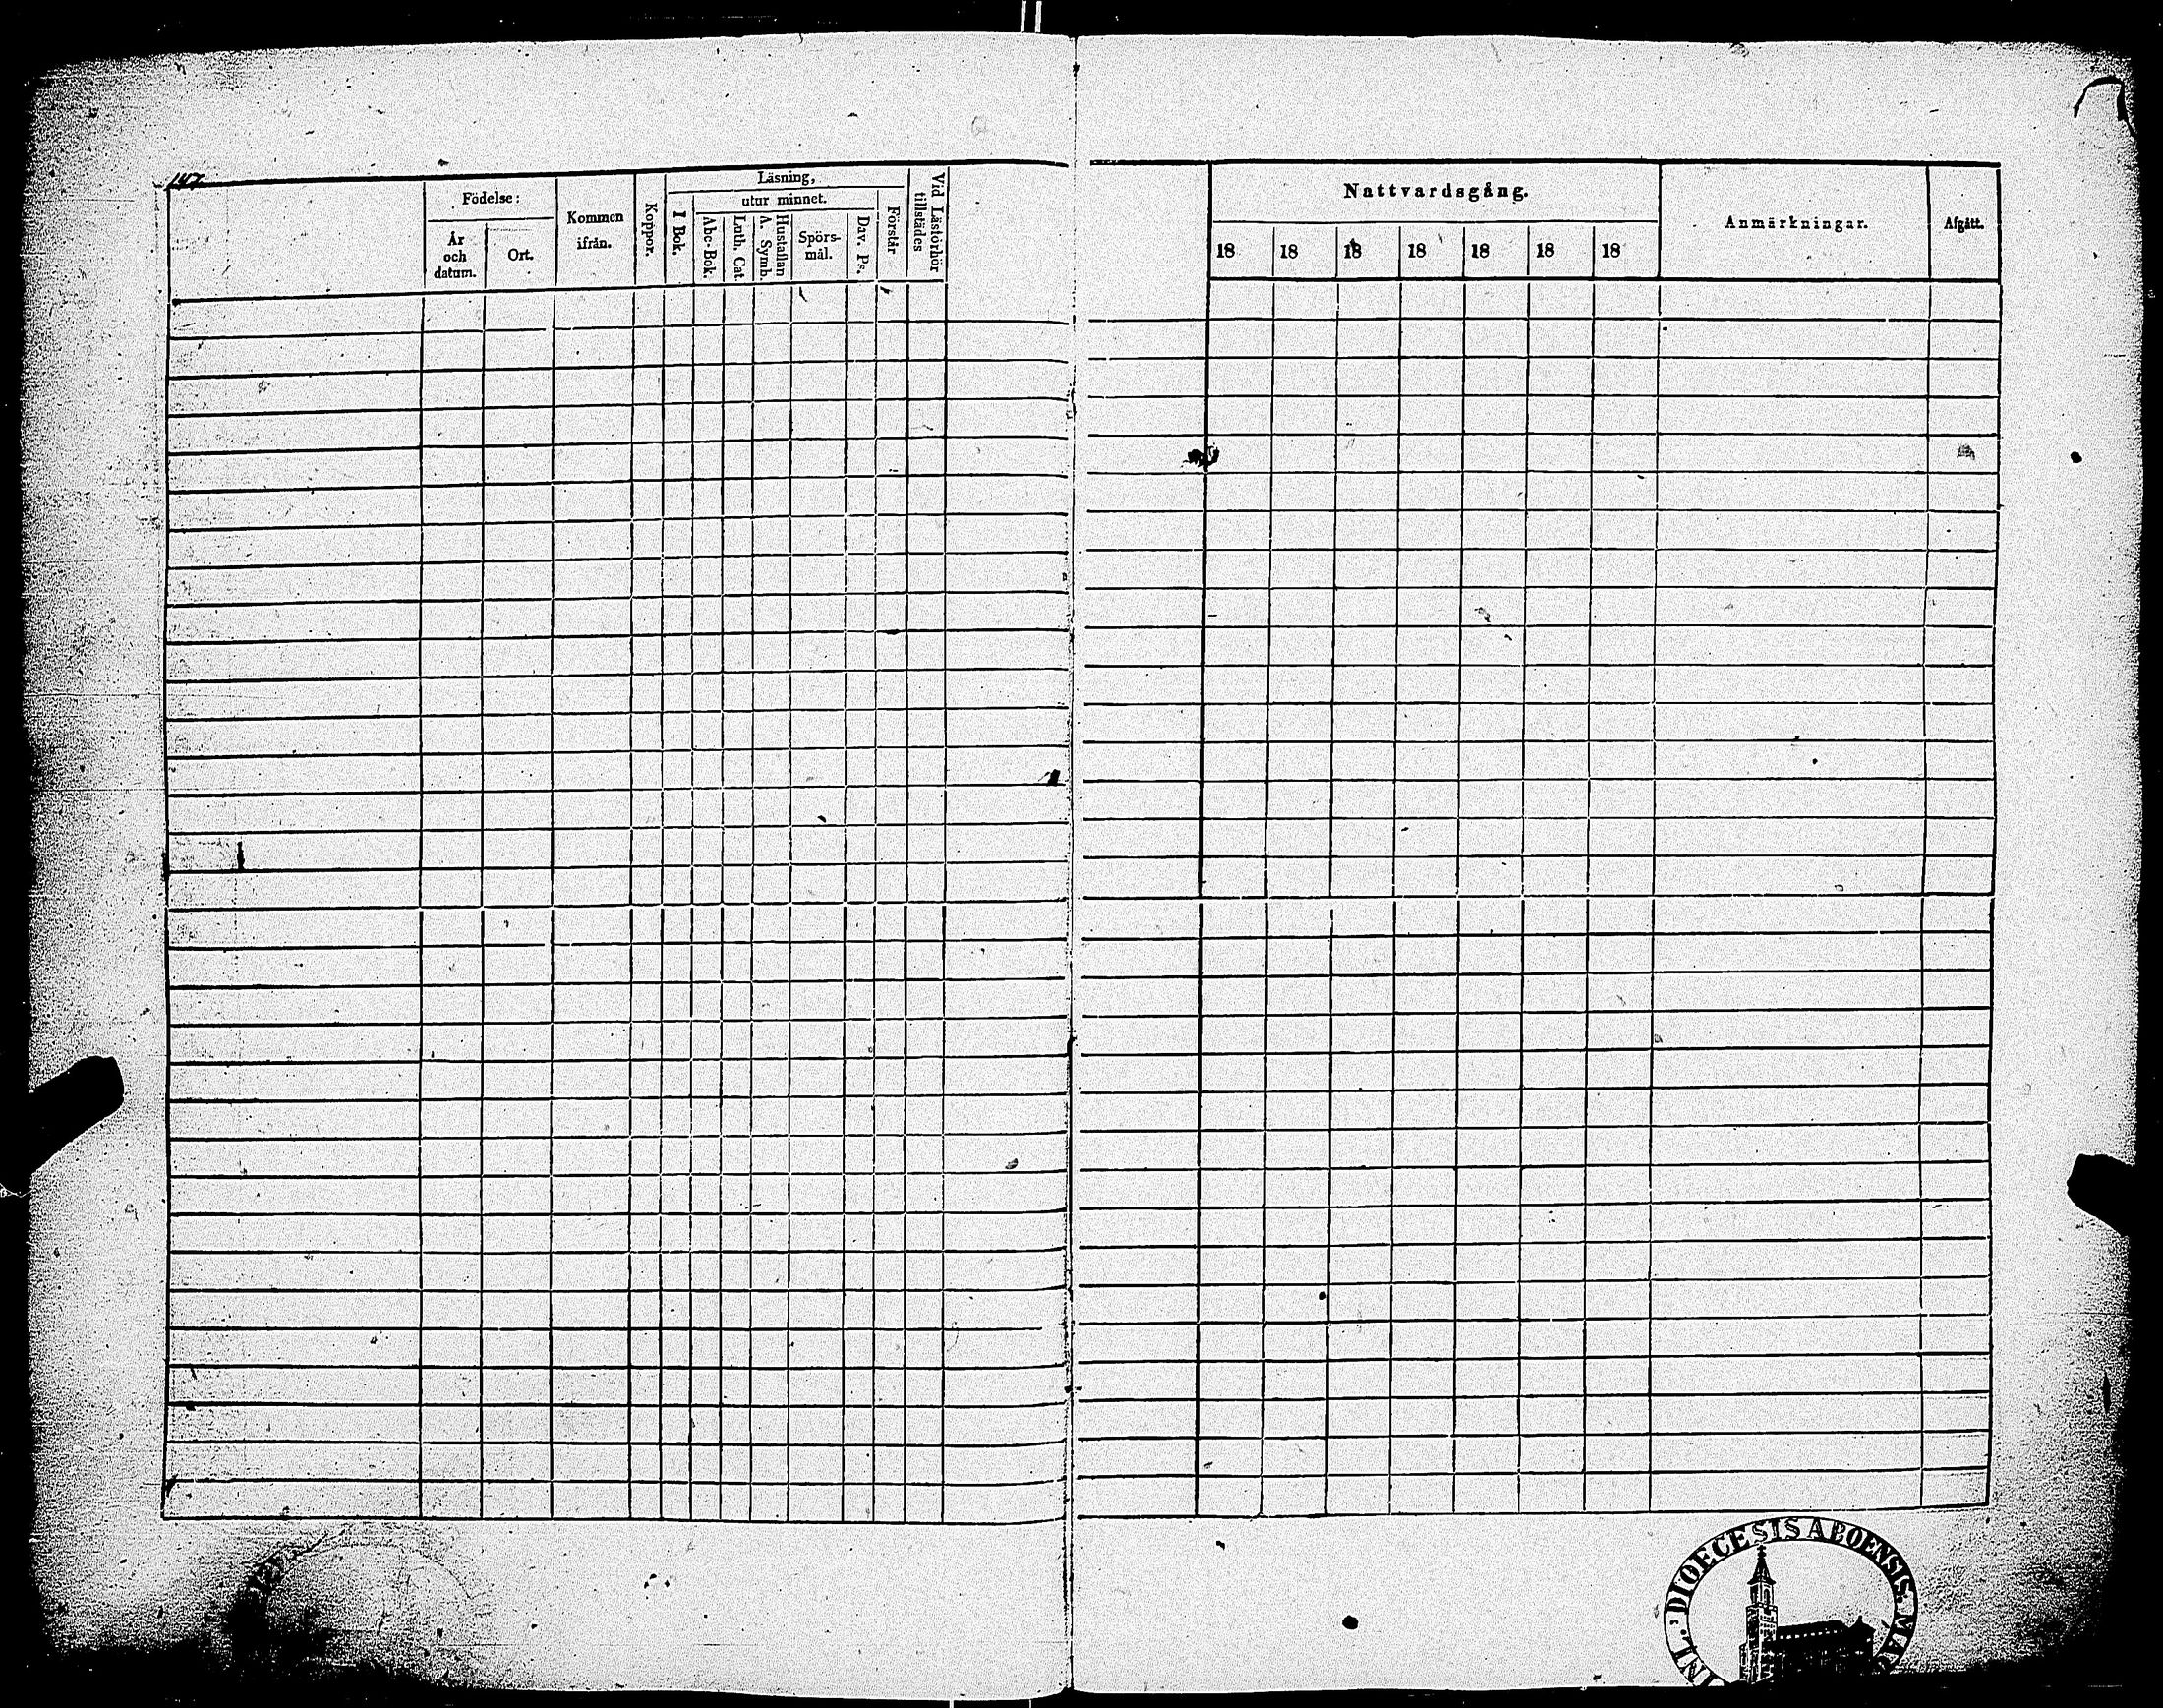 147.
Födelse:
År och datum.
Ort.
Kommen ifrån.
Koppor.
Läsning,
I Bok.
utur minnet.
Abc-Bok.
Luth. Cat.
Hustaflan A. Symb.
Spörs-mål.
Dav. Ps.
Förstår
Vid Läsförhör tillstädes
Nattvardsgång.
18 18 18 18 18 18 18
Anmärkningar.
Afgått.
DIOECESIS ABOENSIS